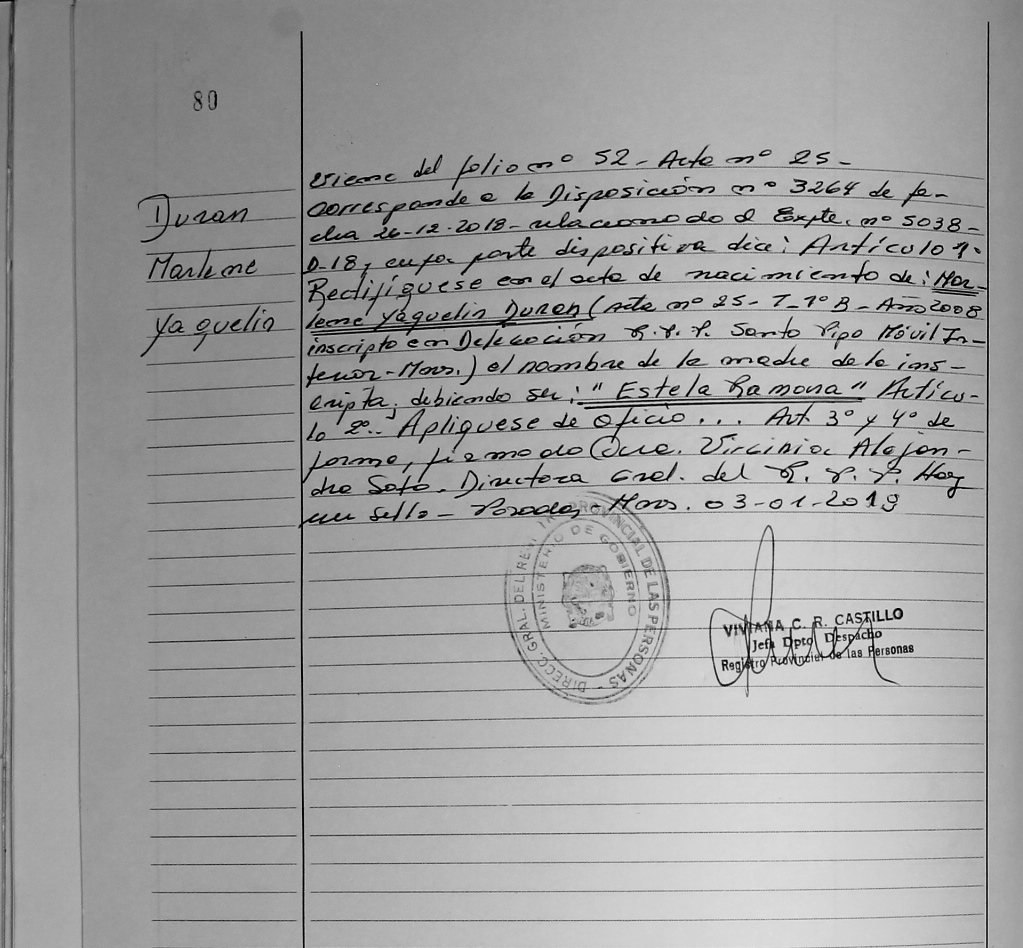 80
Duran
Marlene
Yaquelin
Viene del folio nº 52 - Acta nº 25 -
Corresponde a la Disposición nº 3264 de fe-
cha 26-12-2018 - relacionado al Expte. nº 5038-
D-18, cuya parte dispositiva dice: Artículo 1º
Rectifíquese en el acta de nacimiento de: Mar-
lene Yaquelin Duran (Acta nº 25 - T-1º B - Año 2008
inscripto en Delegación R.P.P. Santo Pipo Móvil In-
terior - Mnes.) el nombre de la madre de la ins-
cripta, debiendo ser: "Estela Ramona" Artícu-
lo 2º.. Aplíquese de oficio ... Art. 3º y 4º de
forma, firmado Dra. Virginia Alejan-
dra Soto. Directora Gral. del R.P.P. Hay
un sello - Posadas, Mnes. 03-01-2019
DIRECC. GRAL. DEL REG. PROVINCIAL DE LAS PERSONAS -
MINISTERIO DE GOBIERNO
VIVIANA C. R. CASTILLO
Jefa Dpto. Despacho
Registro Provincial de las Personas